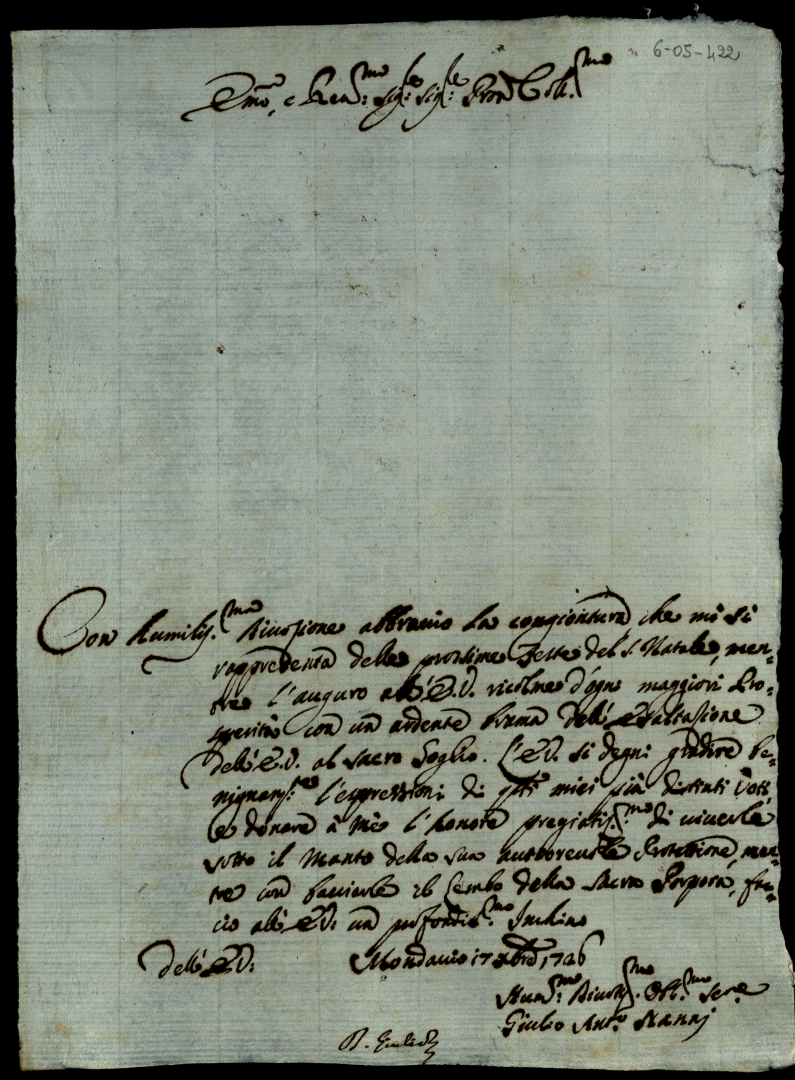 6-05-422
Em̃o, e Reu.mo Sig.re Sig.re Pron Coll.mo
Con humilis.ma diuozione abbraccio la congiontura che mi si
rappresenta delle prossime Feste del S. Natale, men-
tre l'auguro all'E.V. ricolme d'ogni maggiori Pro-
sperità con un ardente brama dell'Esaltazione
dell'E.V. al sacro Soglio. L'E.V. si degni gradire be-
nignam.te l'espressioni di q̃sti miei più distinti Voti
e donare à me l'honore pregiatis.mo di uiuerle
sotto il Manto della sua auttoreuole Protettione, men-
tre con bacciarle il Lembo della Sacra Porpora, fac-
cio all'E.V. un profondis.mo Inchino
dell'E.V.
Mondauio 17 Xbre 1726
Hum.mo Diuot.mo Obl.mo Ser.e
Giulio Ant.o Nannj